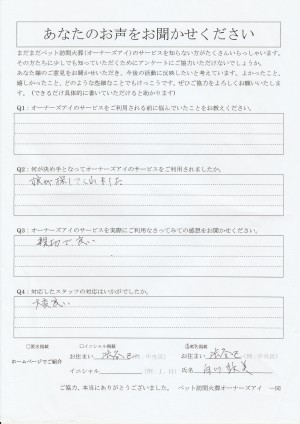 あなたのお声をお聞かせください
まだまだペット訪問火葬(オーナーズアイ)のサービスを知らない方がたくさんいらっしゃいます。
その方たちに少しでも知っていただくためにアンケートにご協力いただけないでしょうか。
あなた様のご意見をお聞かせいただき、今後の活動に反映したいと考えています。よかったこと、
嬉しかったこと、どのような些細なことでもけっこうです。ぜひご協力をよろしくお願いいたしま
す。(できるだけ具体的に書いていただけると助かります)
Q1:オーナーズアイのサービスをご利用される前に悩んでいたことをお教えください。
Q2:何が決め手となってオーナーズアイのサービスをご利用されましたか。
娘が探してくれました
Q3:オーナーズアイのサービスを実際にご利用なさってみての感想をお聞かせください。
親切で良い
Q4:対応したスタッフの対応はいかがでしたか。
大変良い
ホームページでご紹介
□匿名掲載
□イニシャル掲載
お住まい 渋谷区
イニシャル
お住まい 渋谷区
氏名
ご協力、本当にありがとうございました。 ペット訪問火葬オーナーズアイ